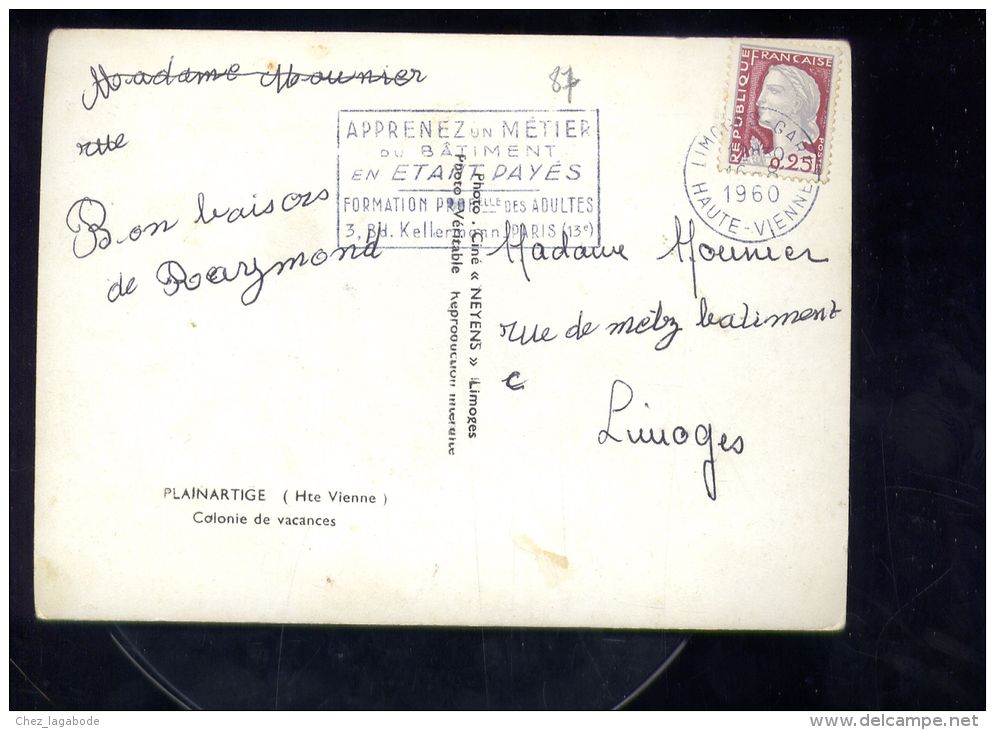 Madame Mounier
rue
Bon baisors
de Raymond
87
APPRENEZ UN MÉTIER
DU BÂTIMENT
EN ETANT PAYÉS
FORMATION PROELLE DES ADULTES
3, Bd. Kellermann, PARIS (13e)
REPUBLIQUE FRANÇAISE
POSTES
0,25
LIMOGES-GARE
1960
HAUTE-VIENNE
Photo-Ciné « NEYENS » Limoges
Photo Véritable Reproduction Interdite
Madame Mounier
rue de metz batiment
C
Limoges
PLAINARTIGE ( Hte Vienne )
Colonie de vacances
Chez_lagabode
www.delcampe.net